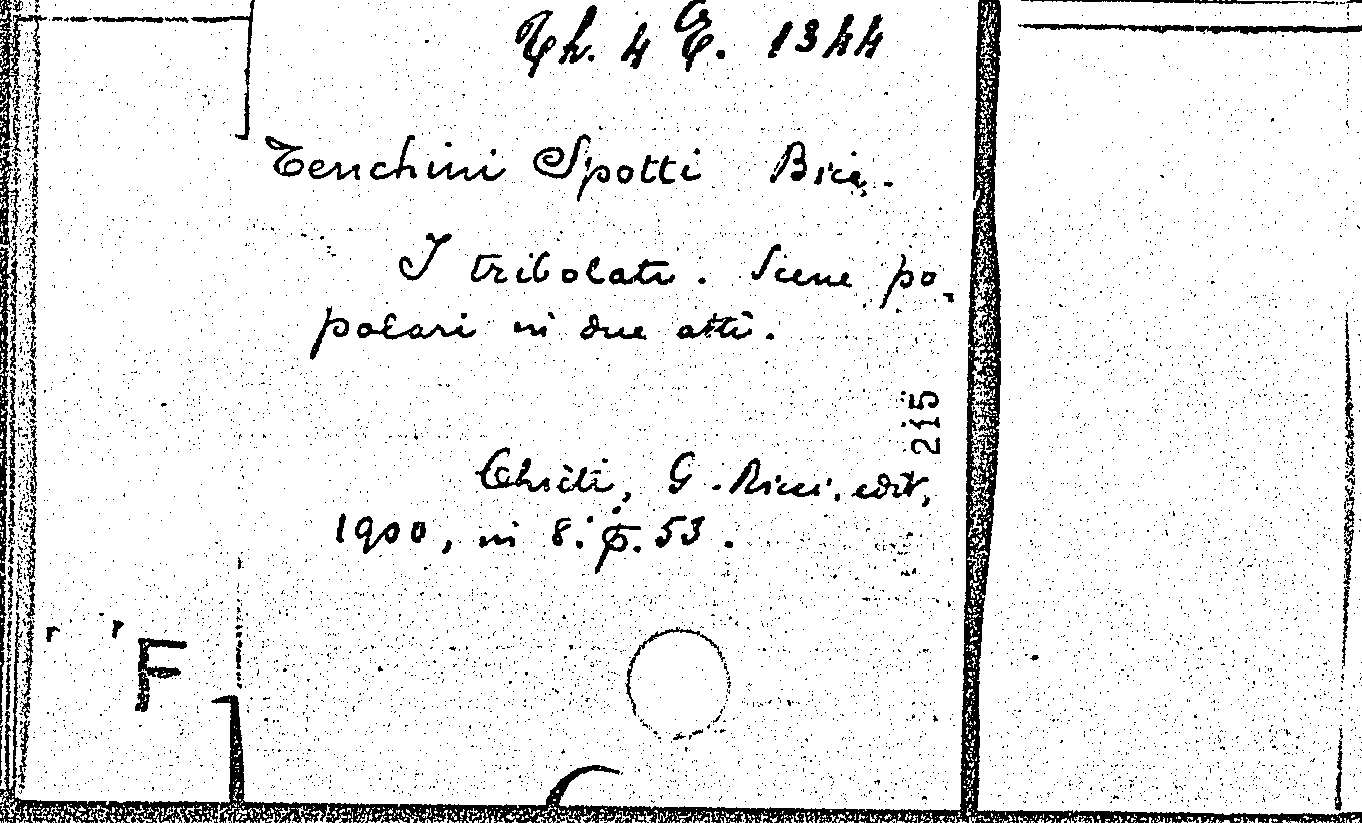 Th. 4 E. 1344
Tenchini Spotti Bice.
I tribolati. Scene po-
polari in due atti.
215
Chieti, G. Ricci, edit,
1900, in 8.° p. 53.
F